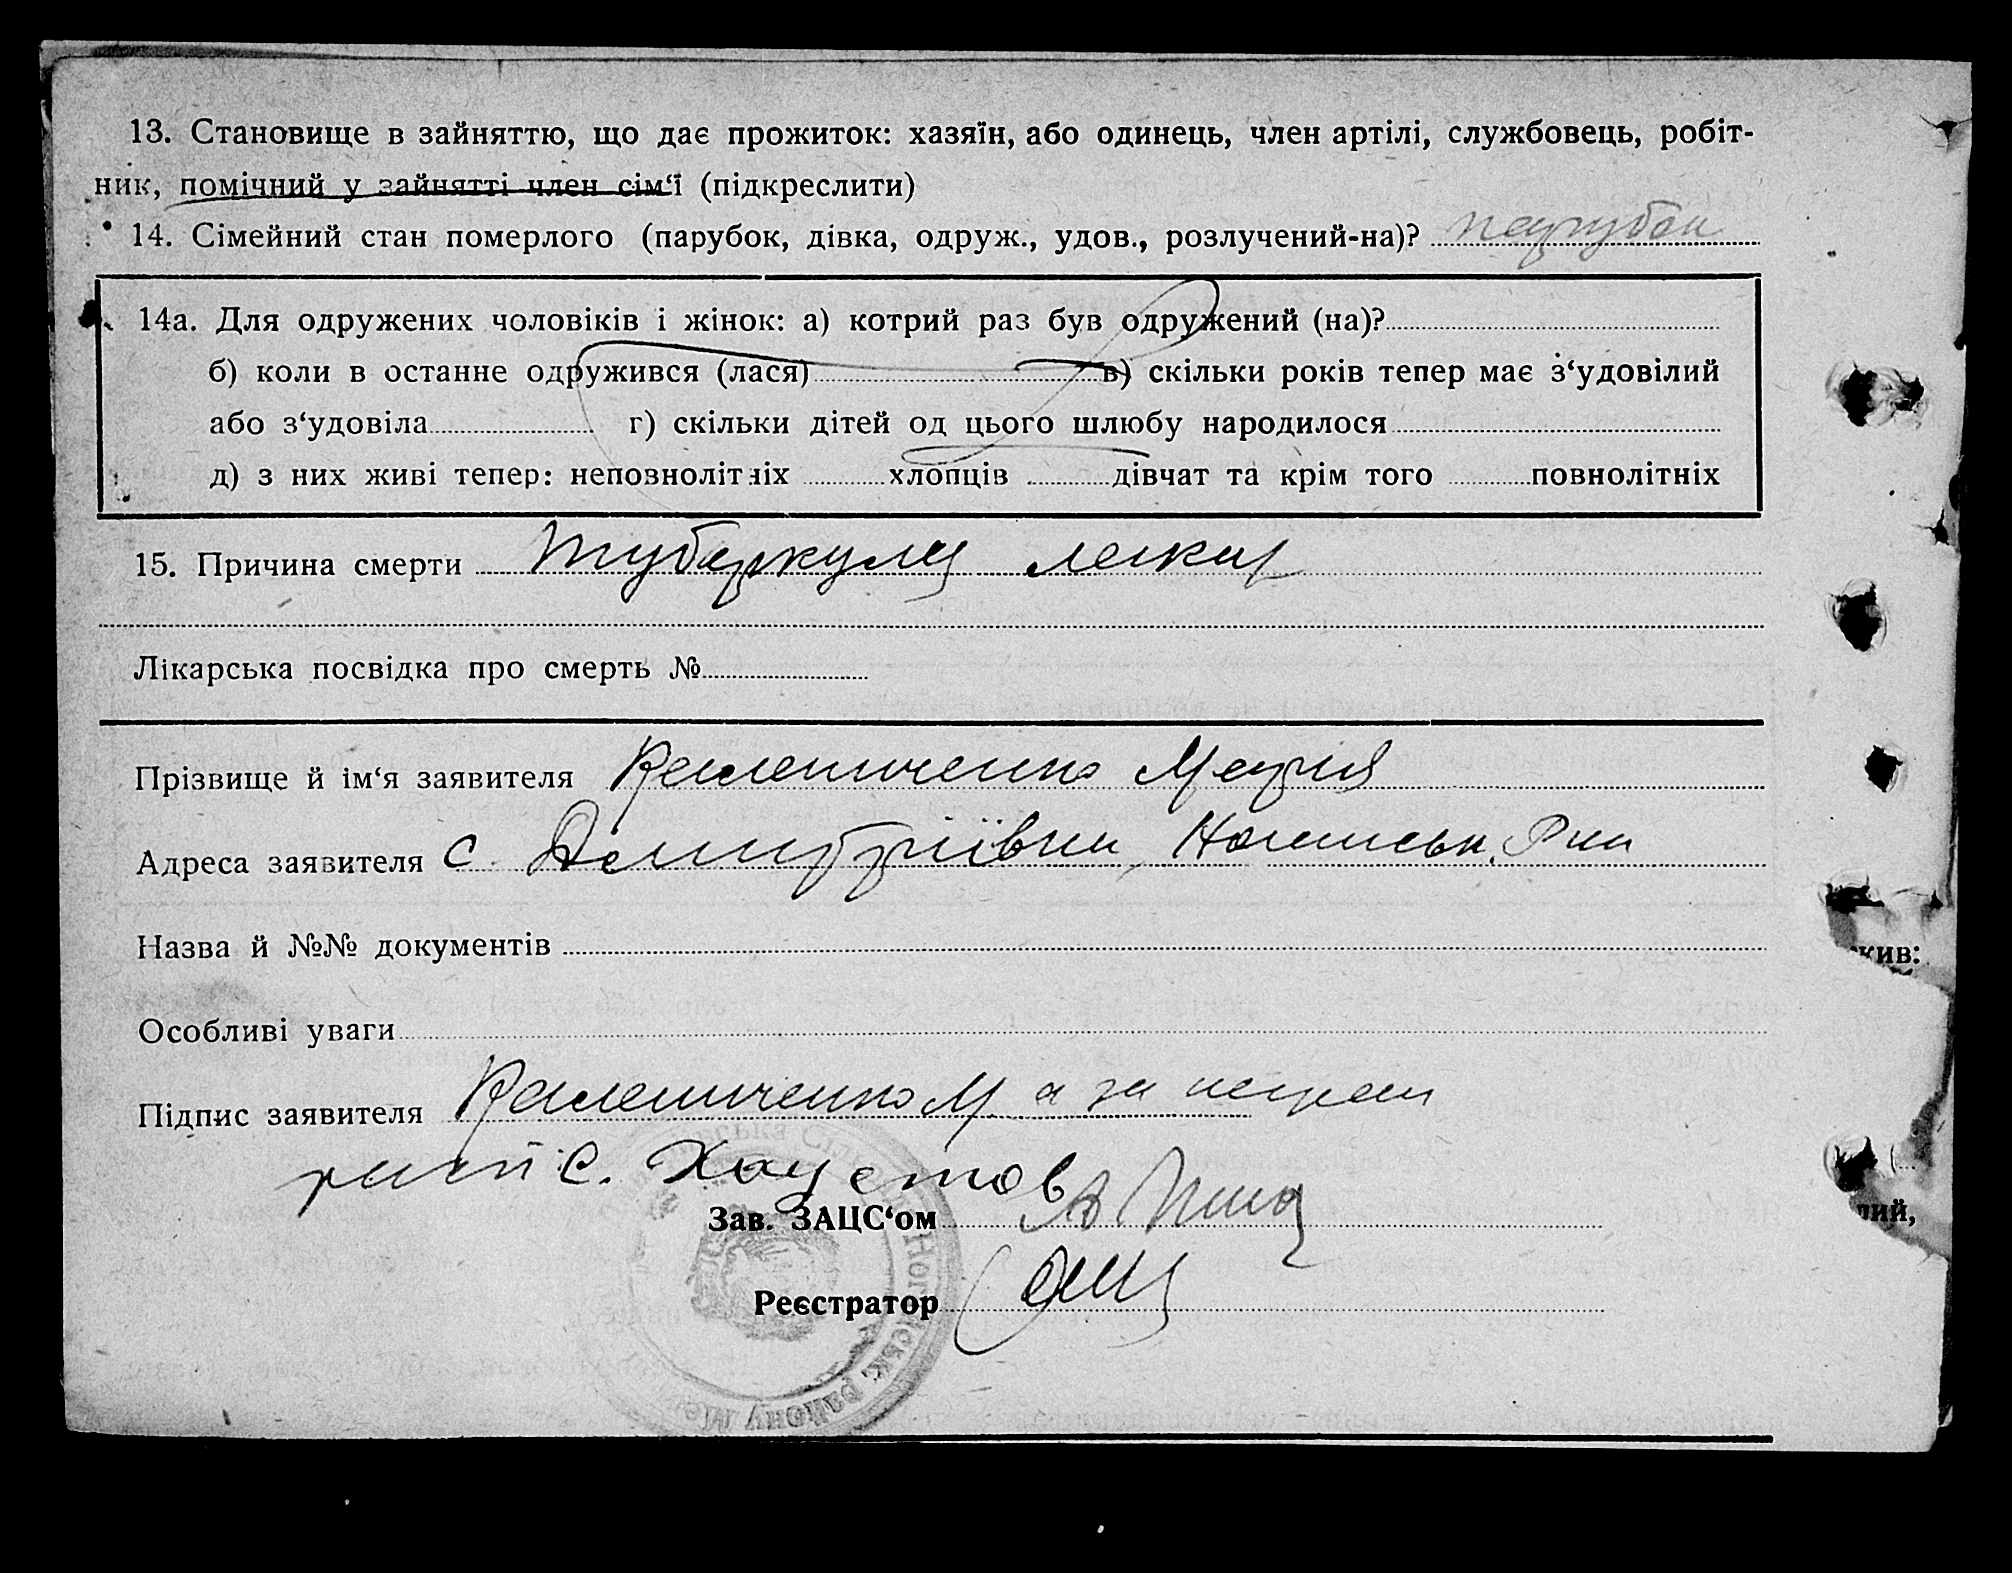 13. Становище в зайняттю, що дає прожиток: хазяїн, або одинець, член артілі, службовець, робіт-
ник, помічний у зайнятті член сім‘ї (підкреслити)
14. Сімейний стан померлого (парубок, дівка, одруж., удов., розлучений-на)? парубок
14а. Для одружених чоловіків і жінок: а) котрий раз був одружений (на)?
б) коли в останне одружився (лася) в) скільки років тепер має з‘удовілий
або з‘удовіла г) скільки дітей од цього шлюбу народилося
д) з них живі тепер: неповнолітніх хлопців дівчат та крім того повнолітніх
15. Причина смерти туберкульоз легких
Лікарська посвідка про смерть №
Прізвище й ім‘я заявителя Марія
Адреса заявителя с. Дмитріївка, Р-на
Назва й №№ документів
кив:
Особливі уваги
Підпис заявителя М. а за неграм
расп С. Хаустов
лий,
Зав. ЗАЦС‘ом
Реєстратор
району